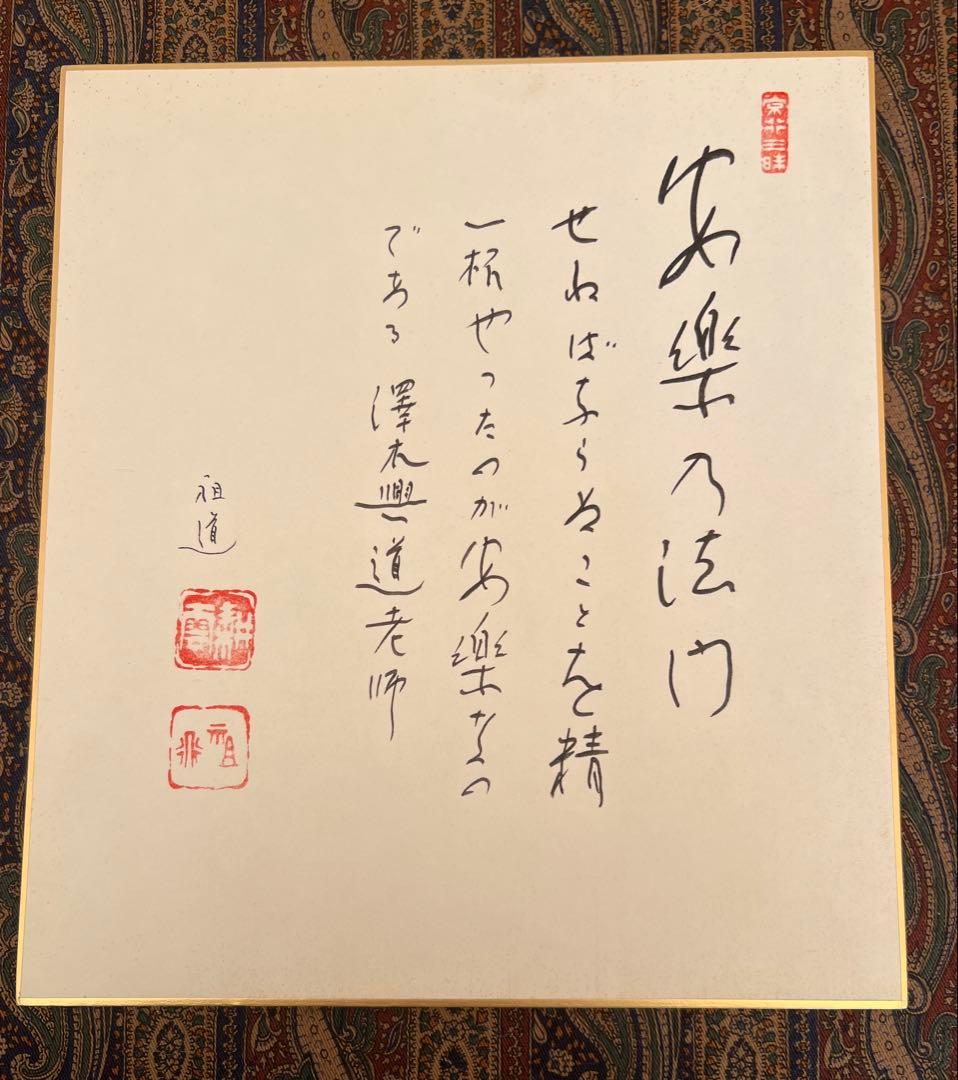 安樂乃法門
せねばならぬことを精
一杯やったのが安樂なの
である 澤木興道老師
祖道